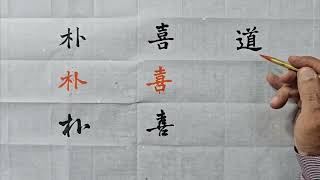 朴 喜 道
朴 喜
朴 喜